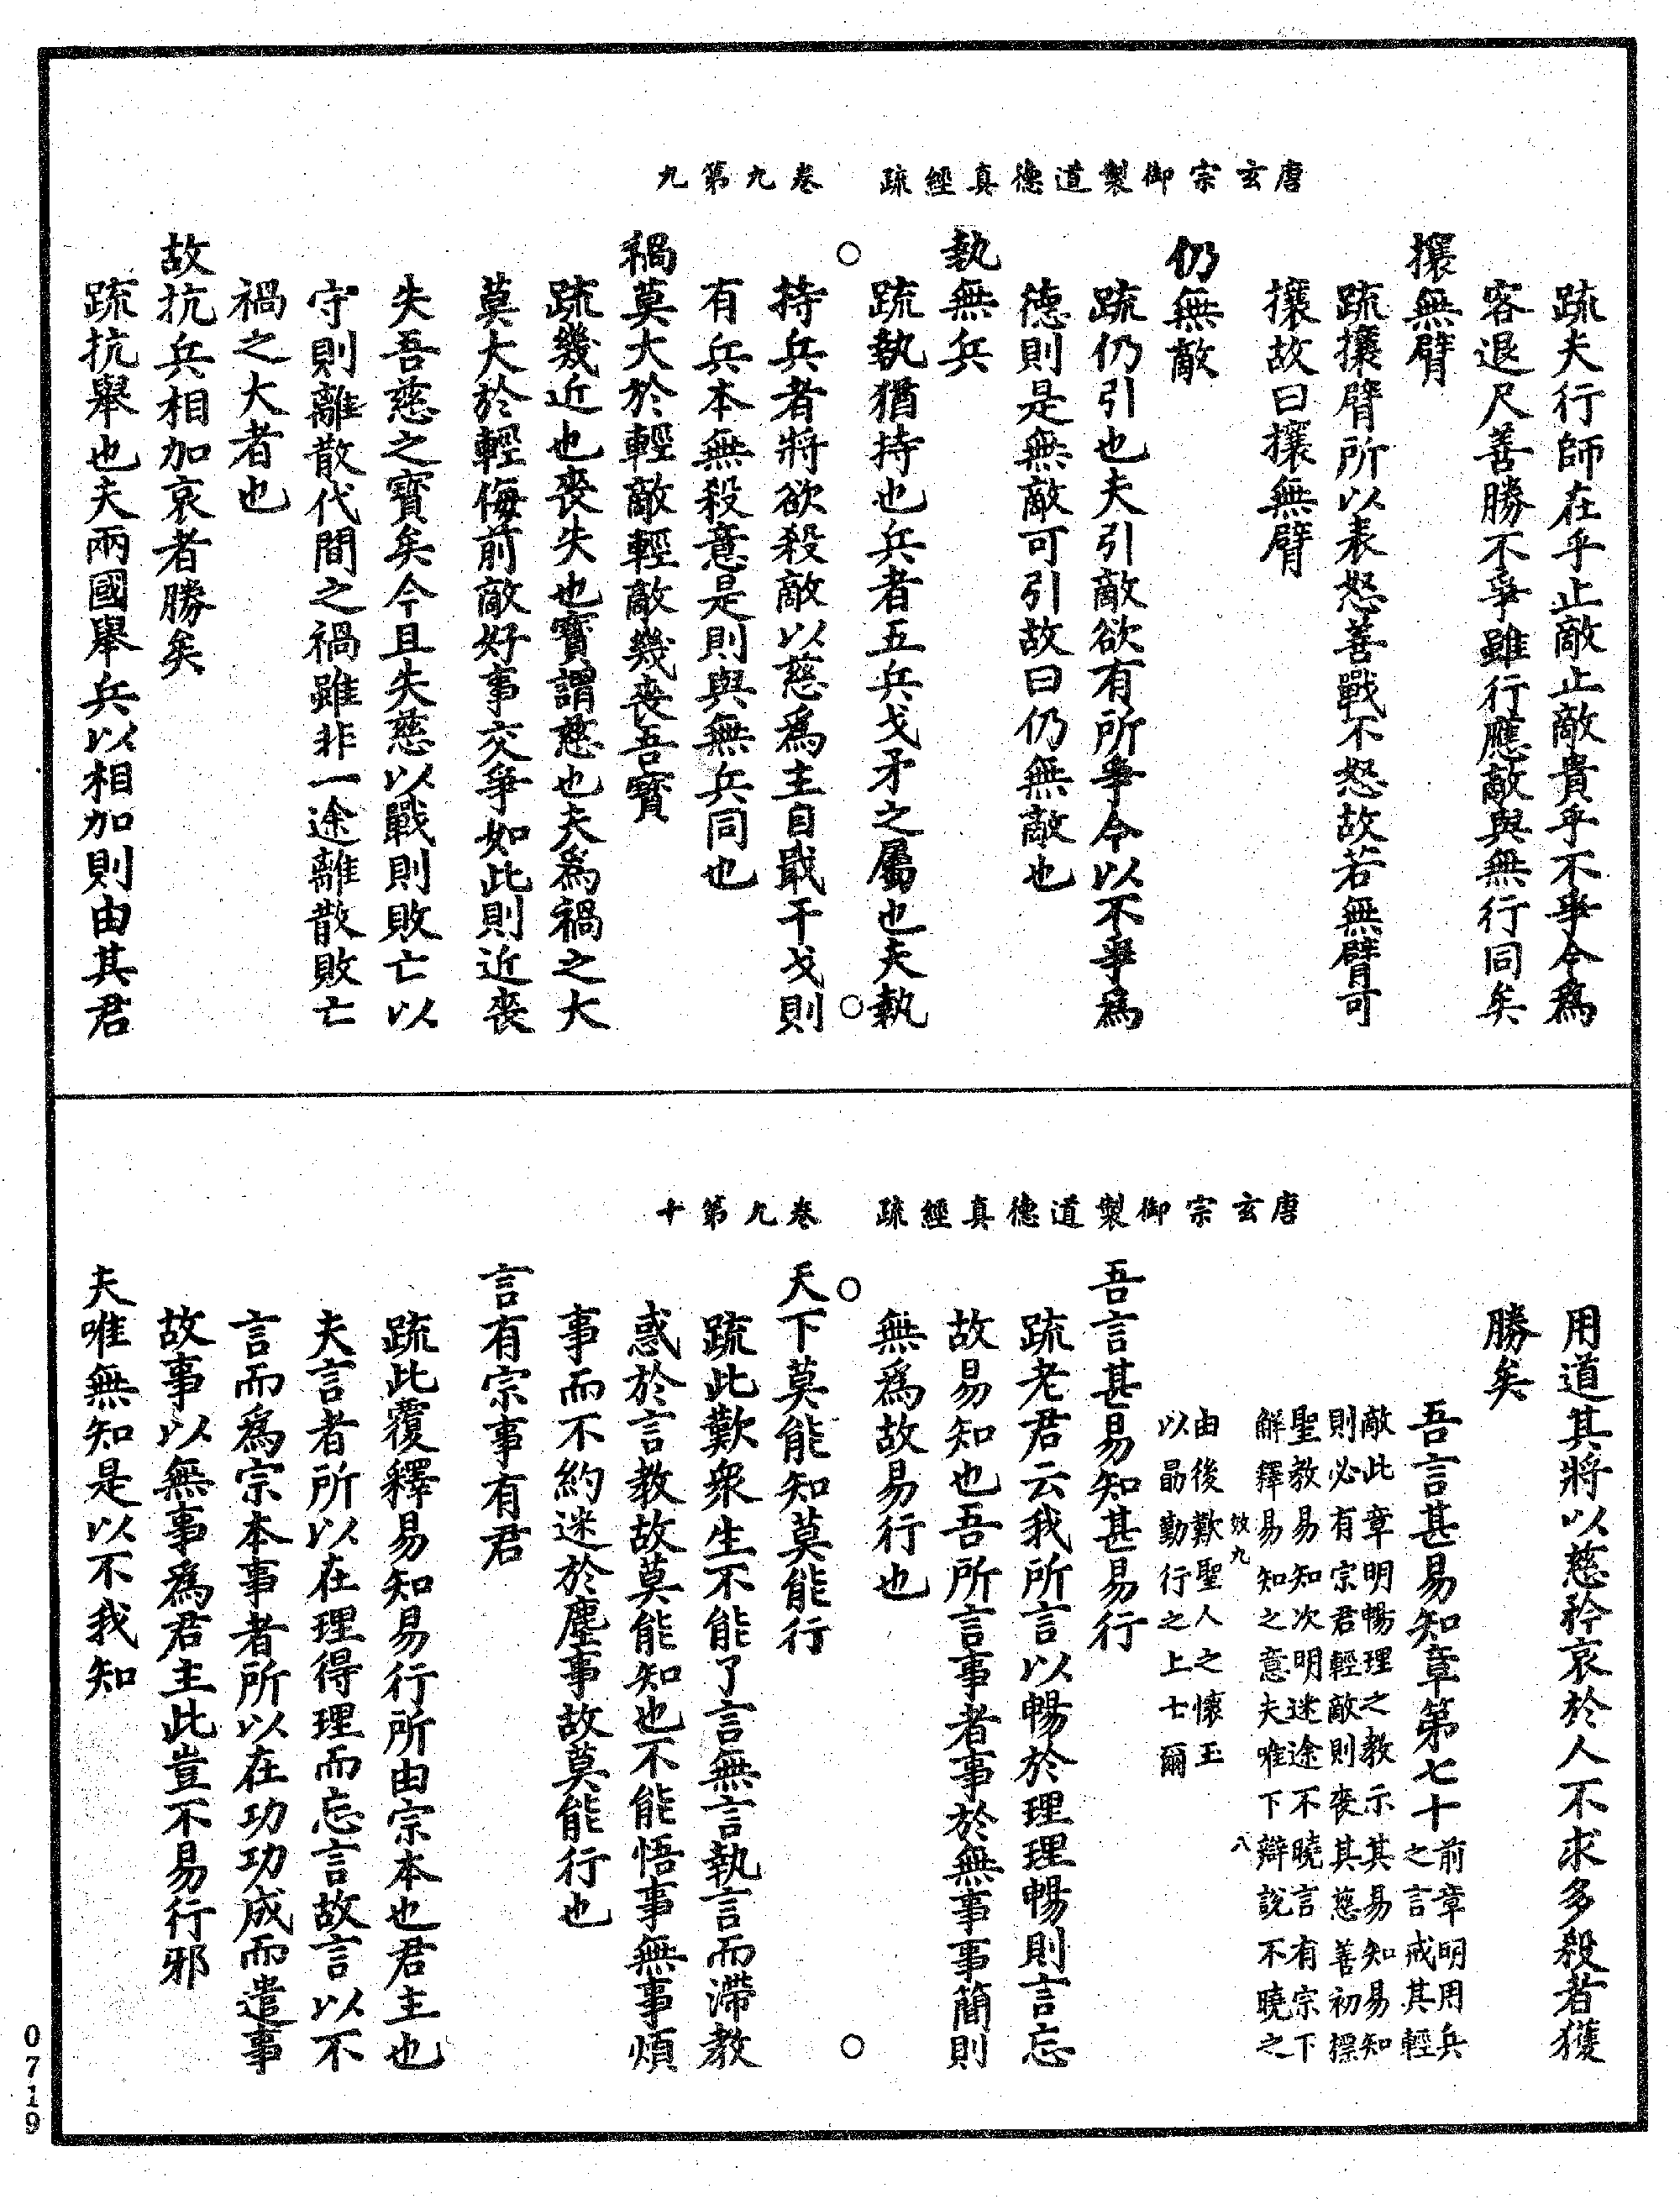 唐玄宗御製道德真經疏　卷九第九
疏夫行師在乎止敵止敵貴乎不爭今爲
客退尺善勝不爭雖行應敵與無行同矣
攘無臂
疏攘臂所以表怒善戰不怒故若無臂可
攘故曰攘無臂
仍無敵
疏仍引也夫引敵欲有所爭今以不爭爲
德則是無敵可引故曰仍無敵也
執無兵
疏執猶持也兵者五兵戈矛之屬也夫執
持兵者將欲殺敵以慈爲主自戢干戈則
有兵本無殺意是則與無兵同也
禍莫大於輕敵輕敵幾喪吾寶
疏幾近也喪失也寶謂慈也夫爲禍之大
莫大於輕侮前敵好事交爭如此則近喪
失吾慈之寶矣今且失慈以戰則敗亡以
守則離散代間之禍雖非一途離散敗亡
禍之大者也
故抗兵相加哀者勝矣
疏抗舉也夫兩國舉兵以相加則由其君
唐玄宗御製道德真經疏　卷九第十
用道其將以慈矜哀於人不求多殺者獲
勝矣
吾言甚易知章第七十
前章明用兵
之言戒其輕
敵此章明暢理之教示其易知易知
則必有宗君輕敵則喪其慈善初摽
聖教易知次明迷途不曉言有宗下
解釋易知之意夫唯下辯說不曉之
效九　八
由後歎聖人之懷玉
以勗勤行之上士爾
吾言甚易知甚易行
疏老君云我所言以暢於理理暢則言忘
故易知也吾所言事者事於無事事簡則
無爲故易行也
天下莫能知莫能行
疏此歎衆生不能了言無言執言而滯教
惑於言教故莫能知也不能悟事無事煩
事而不約迷於塵事故莫能行也
言有宗事有君
疏此覆釋易知易行所由宗本也君主也
夫言者所以在理得理而忘言故言以不
言而爲宗本事者所以在功功成而遣事
故事以無事爲君主此豈不易行邪
夫唯無知是以不我知
0719